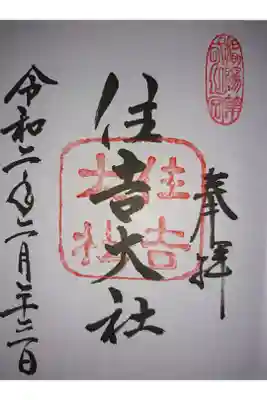 奉拝
住吉大社
住吉大社
令和二年二月二十三日